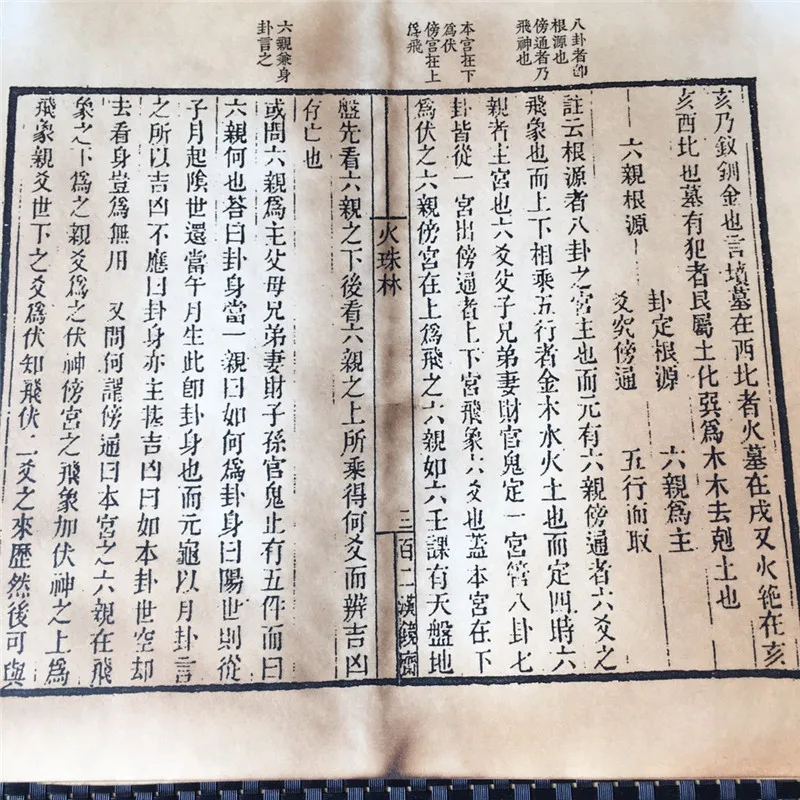 八卦者卽
根源也
傍通者乃
飛神也
本宮在下
爲伏
傍宮在上
爲飛
六親兼身
卦言之
亥乃釵釧金也言墳墓在西北者火墓在戌又火絶在亥
亥西北也墓有犯者艮屬土化巽爲木木去剋土也
六親根源
卦定根源
六親爲主
爻究傍通
五行而取
註云根源者八卦之宮主也而元有六親傍通者六爻之
飛象也而上下相乘五行者金木水火土也而定四時六
親者主宮也六爻父子兄弟妻財官鬼定一宮管八卦七
卦皆從一宮出傍通者上下宮飛象六爻也蓋本宮在下
爲伏之六親傍宮在上爲飛之六親如六壬課有天盤地
火珠林
三
百二漢鏡齋
盤先看六親之下後看六親之上所乘得何爻而辨吉凶
存亡也
或問六親爲主父母兄弟妻財子孫官鬼止有五件而曰
六親何也答曰卦身當一親曰如何爲卦身曰陽世則從
子月起陰世還當午月生此卽卦身也而元龜以月卦言
之所以吉凶不應曰卦身亦主甚吉凶曰如本卦世空却
去看身豈爲無用 又問何謂傍通曰本宮之六親在飛
象之下爲之親爻爲之伏神傍宮之飛象加伏神之上爲
飛象親爻世下之爻爲伏知飛伏二爻之來歷然後可與